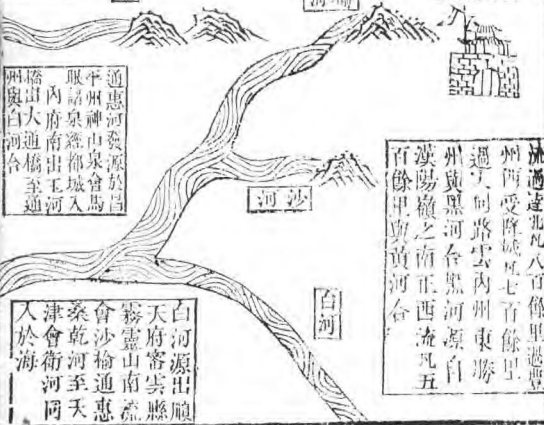 洲過達北凡八百餘里過豐
州西受降城凡七百餘里
過大同路雲內州東勝
州與黑河合黑河源自
漢陽嶺之南正西流凡五
百餘里與黃河合
沙河
白河
通惠河發源於昌
平州神山泉會馬
眼諸泉經都城入
內府南出玉河
橋出大通橋至通
州與白河合
白河源出順
天府密雲縣
霧靈山南流
會沙榆通惠
桑乾河至天
津會衛河同
入於海